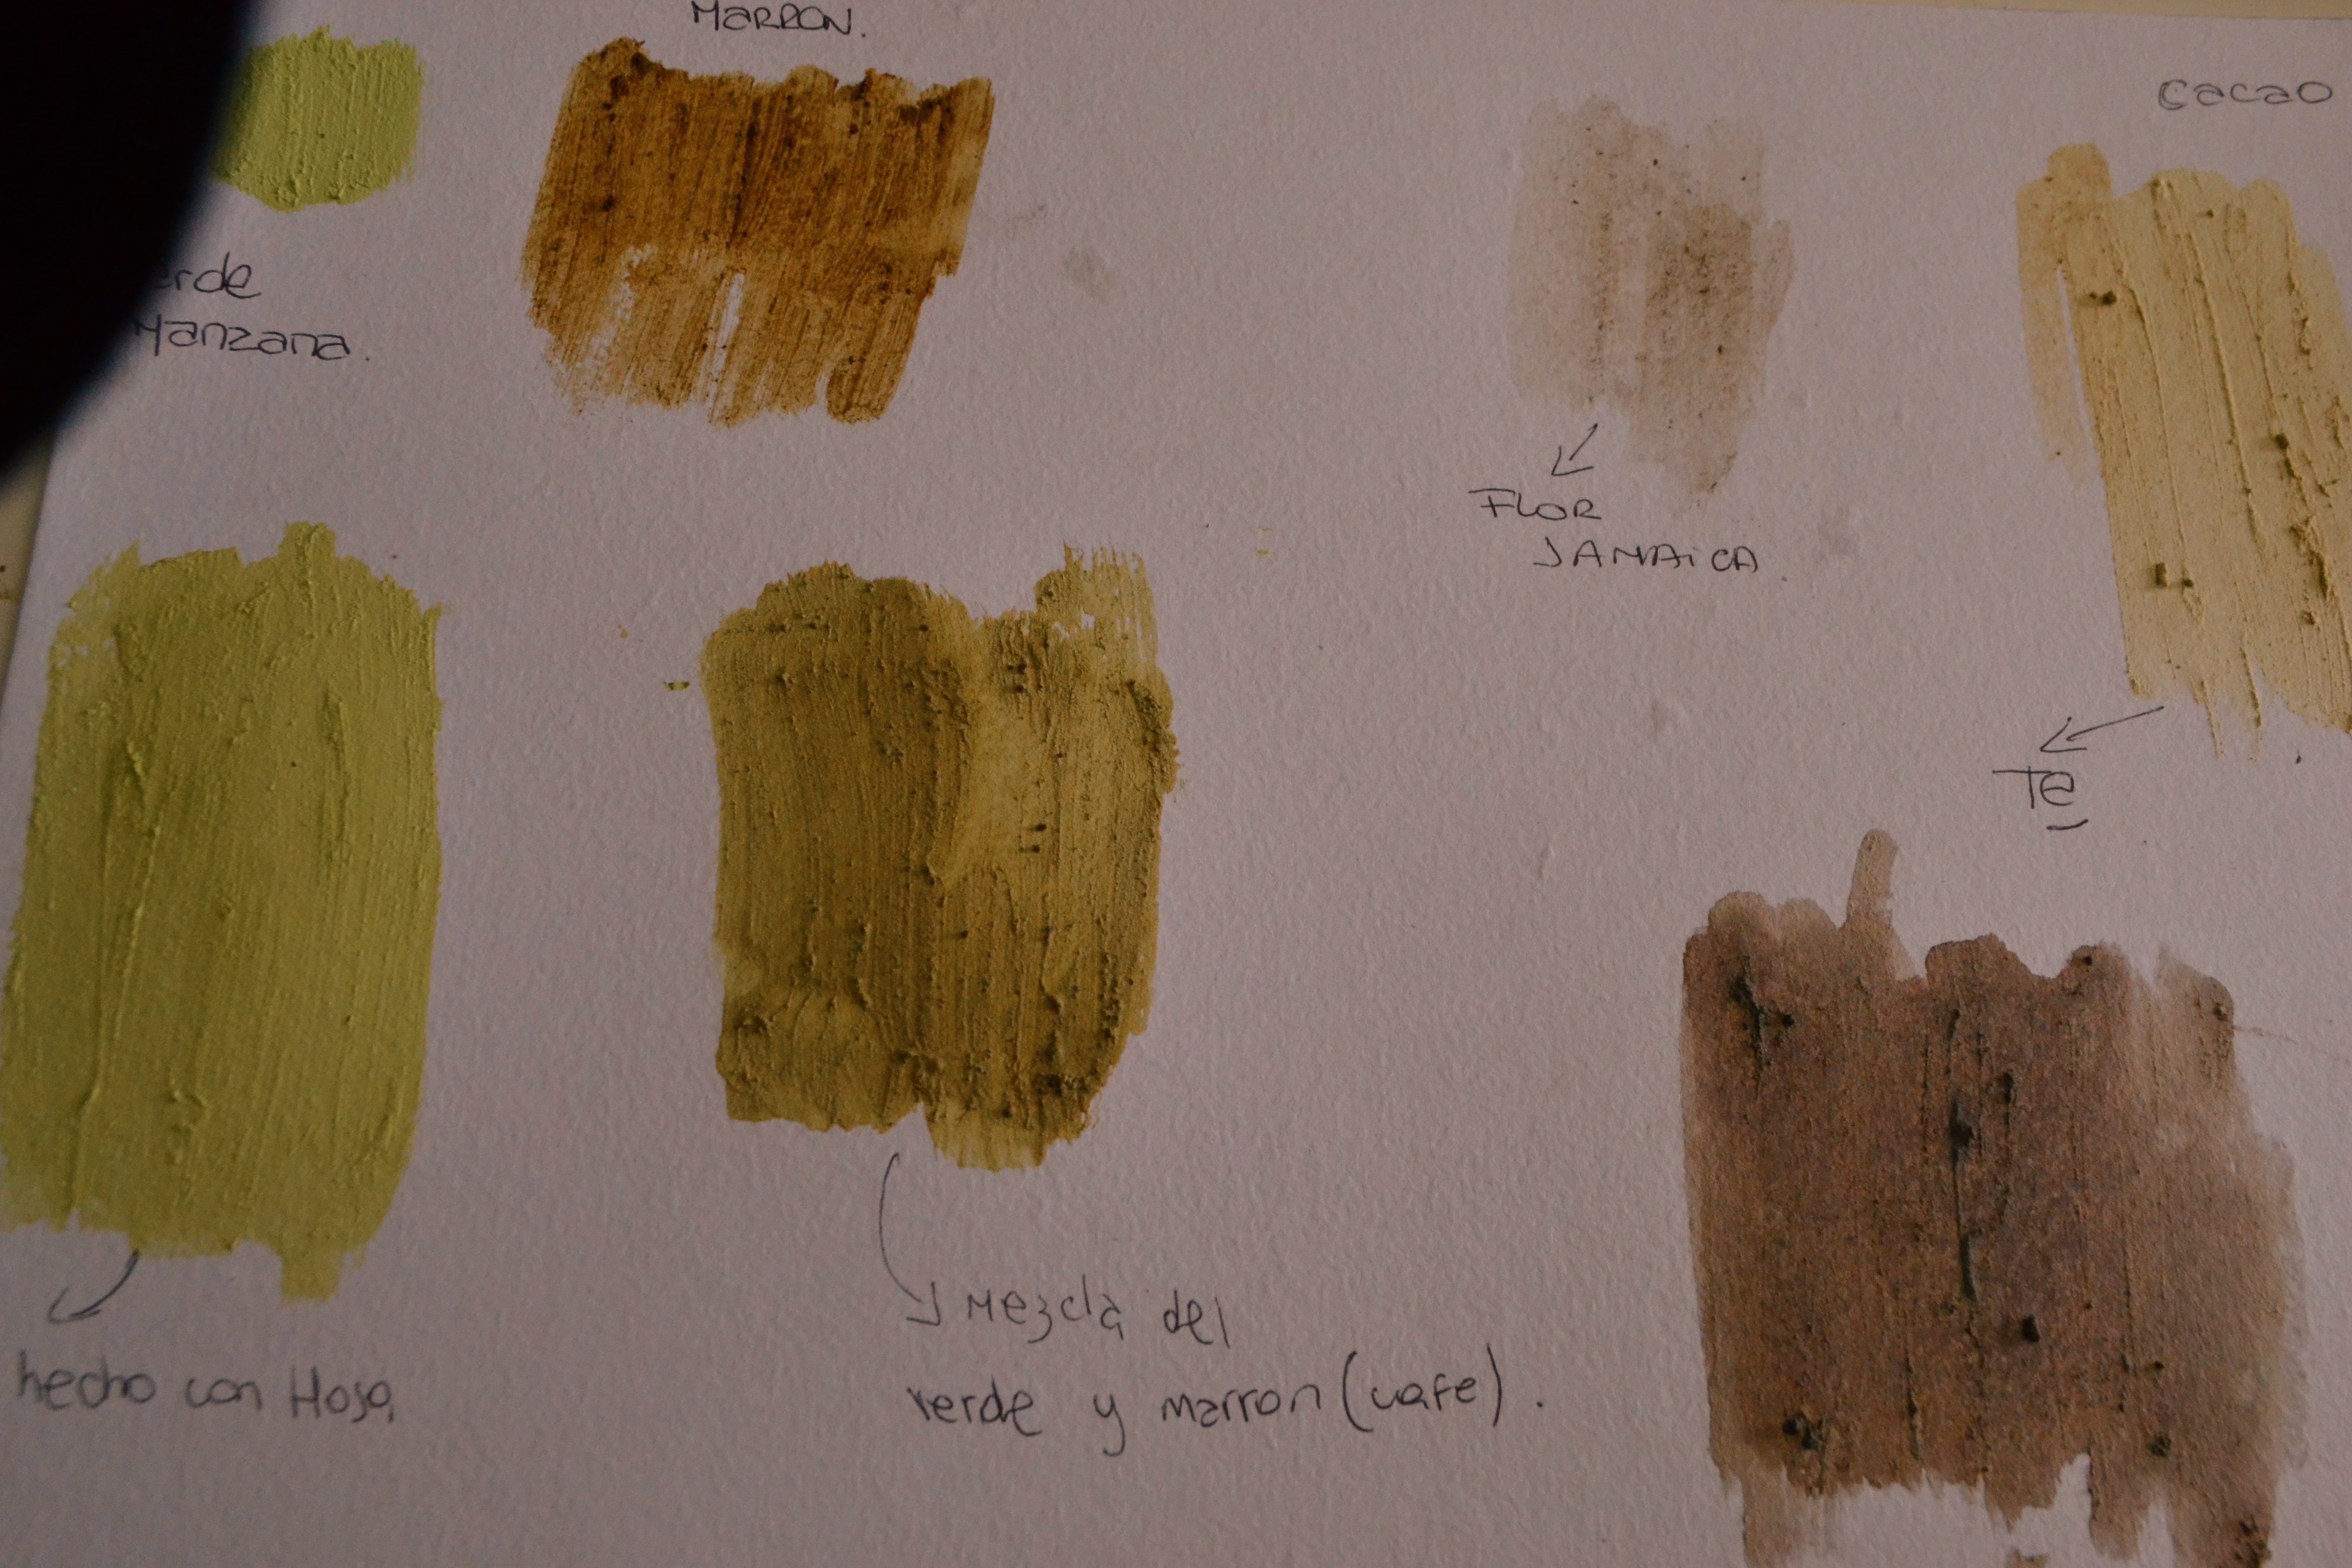 MARRON.
cacao
erde
Manzana.
FLOR
JAMAICA.
Te
hecho con Hoja
Mezcla del
verde y marron (cafe).